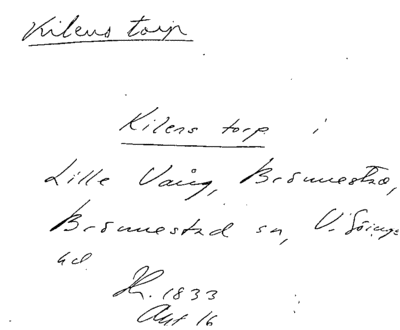 Kilens torp
Kilens torp i
Lille Vång, Brönnestad,
Brönnestad sn, V. Göinge
hd.
Kr. 1833
Akt 16